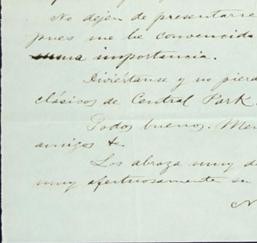 No dejen de presentarse
pues me he convencido
suma importancia.
Diviértanse y no pierda
clásicos de Central Park.
Todos buenos. Mer
amigos &.
Los abraza muy d
muy afectuosamente su
N